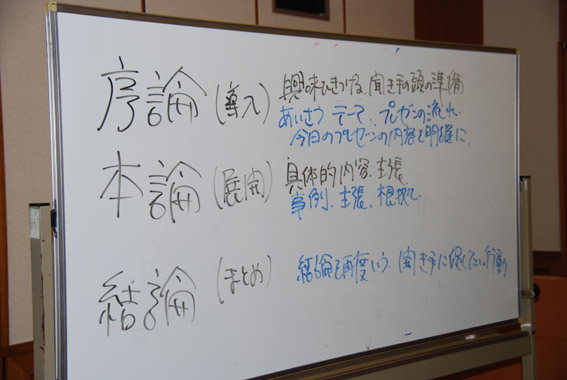 序論(導入) 興味ひきつける、聞き手の頭の準備
あいさつ テーマ プレゼンの流れ
今日のプレゼンの内容を明確に
本論(展開) 具体的内容、主張
事例、主張、根拠
結論(まとめ) 結論を再度いう 聞き手に促したい行動